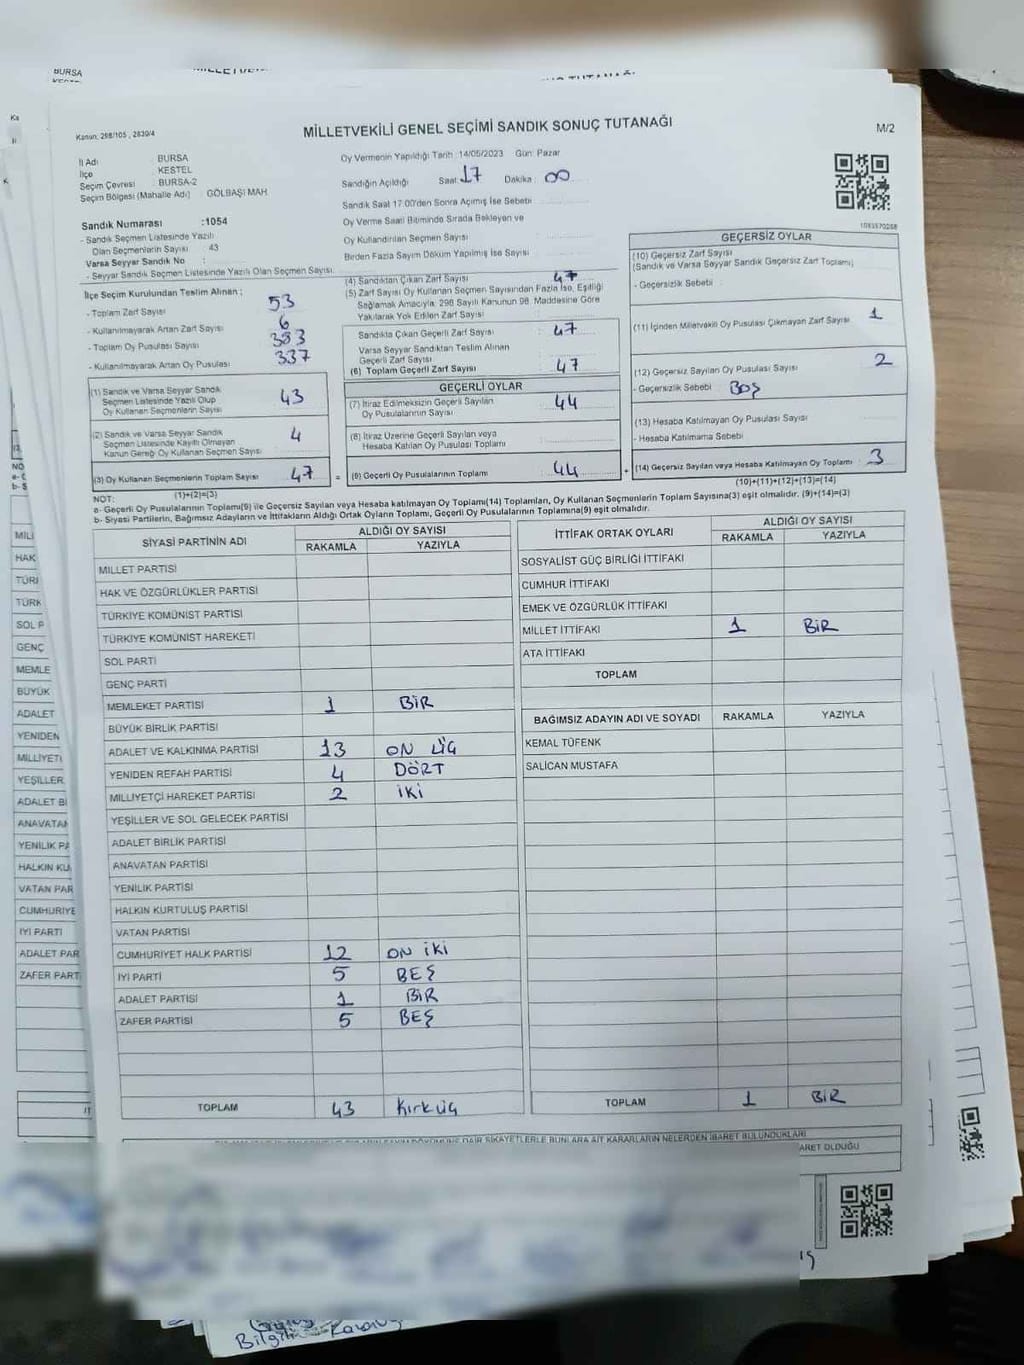 BURSA
Kanun: 298/105 , 2839/4
MİLLETVEKİLİ GENEL SEÇİMİ SANDIK SONUÇ TUTANAĞI
M/2
İl Adı BURSA
İlçe KESTEL
Seçim Çevresi : BURSA-2
Seçim Bölgesi (Mahalle Adı) : GÖLBAŞI MAH.
Oy Vermenin Yapıldığı Tarih :14/05/2023 Gün: Pazar
Sandığın Açıldığı Saat: 17 Dakika : 00
Sandık Saat 17:00'den Sonra Açılmış İse Sebebi
Oy Verme Saati Bitiminde Sırada Bekleyen ve
Oy Kullandırılan Seçmen Sayısı
Birden Fazla Sayım Döküm Yapılmış İse Sayısı
Sandık Numarası :1054
- Sandık Seçmen Listesinde Yazılı
Olan Seçmenlerin Sayısı : 43
Varsa Seyyar Sandık No :
- Seyyar Sandık Seçmen Listesinde Yazılı Olan Seçmen Sayısı
İlçe Seçim Kurulundan Teslim Alınan ;
- Toplam Zarf Sayısı : 53
- Kullanılmayarak Artan Zarf Sayısı : 6
- Toplam Oy Pusulası Sayısı : 383
- Kullanılmayarak Artan Oy Pusulası : 337
(1) Sandık ve Varsa Seyyar Sandık
Seçmen Listesinde Yazılı Olup
Oy Kullanan Seçmenlerin Sayısı 43
(2) Sandık ve Varsa Seyyar Sandık
Seçmen Listesinde Kayıtlı Olmayan
Kanun Gereği Oy Kullanan Seçmen Sayısı 4
(3) Oy Kullanan Seçmenlerin Toplam Sayısı 47
(1)+(2)=(3)
(4) Sandıktan Çıkan Zarf Sayısı 47
(5) Zarf Sayısı Oy Kullanan Seçmen Sayısından Fazla İse, Eşitliği
Sağlamak Amacıyla, 298 Sayılı Kanunun 98. Maddesine Göre
Yakılarak Yok Edilen Zarf Sayısı :
Sandıkta Çıkan Geçerli Zarf Sayısı : 47
Varsa Seyyar Sandıktan Teslim Alınan
Geçerli Zarf Sayısı
(6) Toplam Geçerli Zarf Sayısı : 47
GEÇERLİ OYLAR
(7) İtiraz Edilmeksizin Geçerli Sayılan
Oy Pusulalarının Sayısı : 44
(8) İtiraz Üzerine Geçerli Sayılan veya
Hesaba Katılan Oy Pusulası Toplamı
= (9) Geçerli Oy Pusulalarının Toplamı 44
GEÇERSİZ OYLAR
(10) Geçersiz Zarf Sayısı
(Sandık ve Varsa Seyyar Sandık Geçersiz Zarf Toplamı)
- Geçersizlik Sebebi :
(11) İçinden Milletvekili Oy Pusulası Çıkmayan Zarf Sayısı 1
(12) Geçersiz Sayılan Oy Pusulası Sayısı 2
- Geçersizlik Sebebi : BOŞ
(13) Hesaba Katılmayan Oy Pusulası Sayısı
- Hesaba Katılmama Sebebi
+ (14) Geçersiz Sayılan veya Hesaba Katılmayan Oy Toplamı : 3
(10)+(11)+(12)+(13)=(14)
NOT:
a- Geçerli Oy Pusulalarının Toplamı(9) ile Geçersiz Sayılan veya Hesaba katılmayan Oy Toplamı(14) Toplamları, Oy Kullanan Seçmenlerin Toplam Sayısına(3) eşit olmalıdır. (9)+(14)=(3)
b- Siyasi Partilerin, Bağımsız Adayların ve İttifakların Aldığı Ortak Oyların Toplamı, Geçerli Oy Pusulalarının Toplamına(9) eşit olmalıdır.
SİYASİ PARTİNİN ADI ALDIĞI OY SAYISI
RAKAMLA YAZIYLA
MİLLET PARTİSİ
HAK VE ÖZGÜRLÜKLER PARTİSİ
TÜRKİYE KOMÜNİST PARTİSİ
TÜRKİYE KOMÜNİST HAREKETİ
SOL PARTİ
GENÇ PARTİ
MEMLEKET PARTİSİ 1 BİR
BÜYÜK BİRLİK PARTİSİ
ADALET VE KALKINMA PARTİSİ 13 ON ÜÇ
YENİDEN REFAH PARTİSİ 4 DÖRT
MİLLİYETÇİ HAREKET PARTİSİ 2 İKİ
YEŞİLLER VE SOL GELECEK PARTİSİ
ADALET BİRLİK PARTİSİ
ANAVATAN PARTİSİ
YENİLİK PARTİSİ
HALKIN KURTULUŞ PARTİSİ
VATAN PARTİSİ
CUMHURİYET HALK PARTİSİ 12 ON İKİ
İYİ PARTİ 5 BEŞ
ADALET PARTİSİ 1 BİR
ZAFER PARTİSİ 5 BEŞ
TOPLAM 43 Kırküç
İTTİFAK ORTAK OYLARI ALDIĞI OY SAYISI
RAKAMLA YAZIYLA
SOSYALİST GÜÇ BİRLİĞİ İTTİFAKI
CUMHUR İTTİFAKI
EMEK VE ÖZGÜRLÜK İTTİFAKI
MİLLET İTTİFAKI 1 BİR
ATA İTTİFAKI
TOPLAM
BAĞIMSIZ ADAYIN ADI VE SOYADI RAKAMLA YAZIYLA
KEMAL TÜFENK
SALİCAN MUSTAFA
TOPLAM 1 BİR